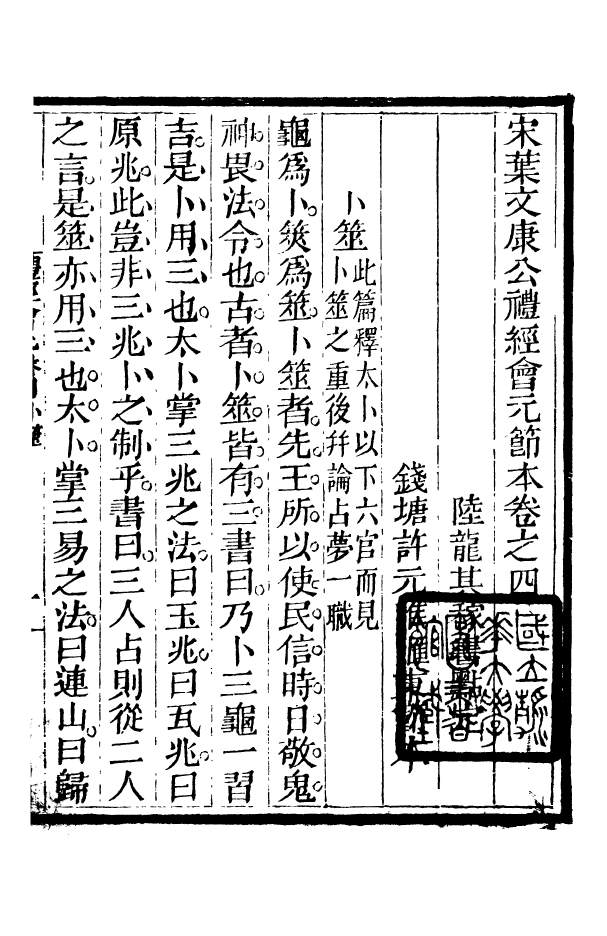 宋葉文康公禮經會元節本卷之四
陸龍其
錢塘許元
卜筮此篇釋太卜以下六官而見
卜筮之重後幷論占夢一職
龜爲卜。筴爲筮。卜筮者。先王所以使民信時日敬鬼
神。畏法令也。古者卜筮皆有三。書曰。乃卜三龜一習
吉。是卜用三也。太卜掌三兆之法。曰玉兆。曰瓦兆。曰
原兆。此豈非三兆卜之制乎。書曰。三人占則從二人
之言。是筮亦用三也。太卜掌三易之法。曰連山。曰歸